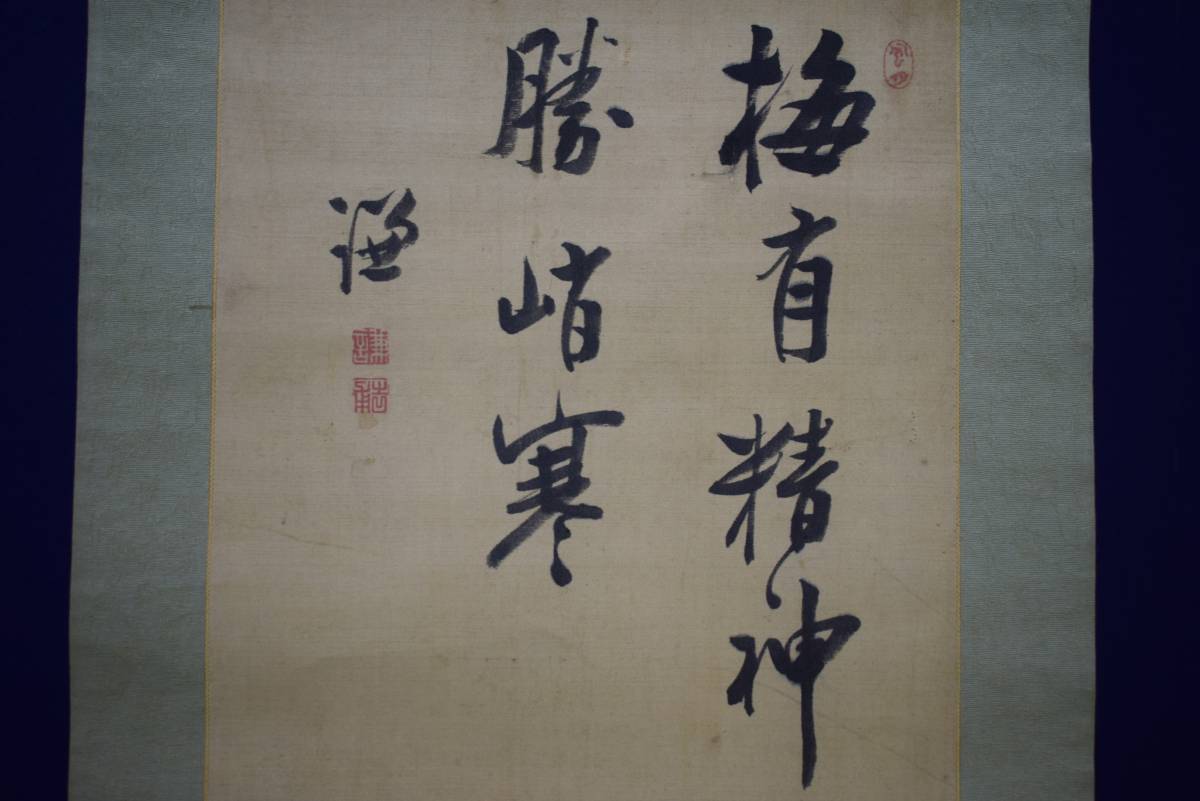 梅有精神
勝峭寒
謙